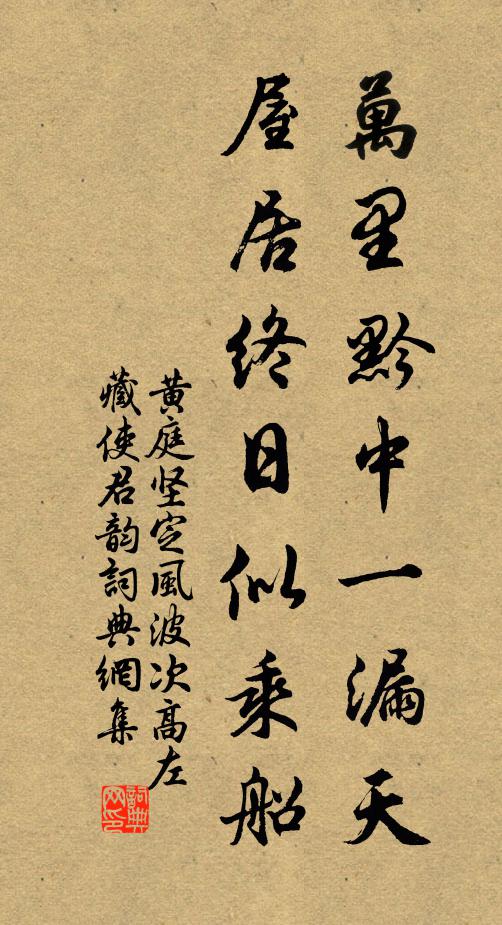 萬里黔中一漏天
屋居終日似乘船
黄庭坚定風波次高左
藏使君韵詞典網集
詞典網印